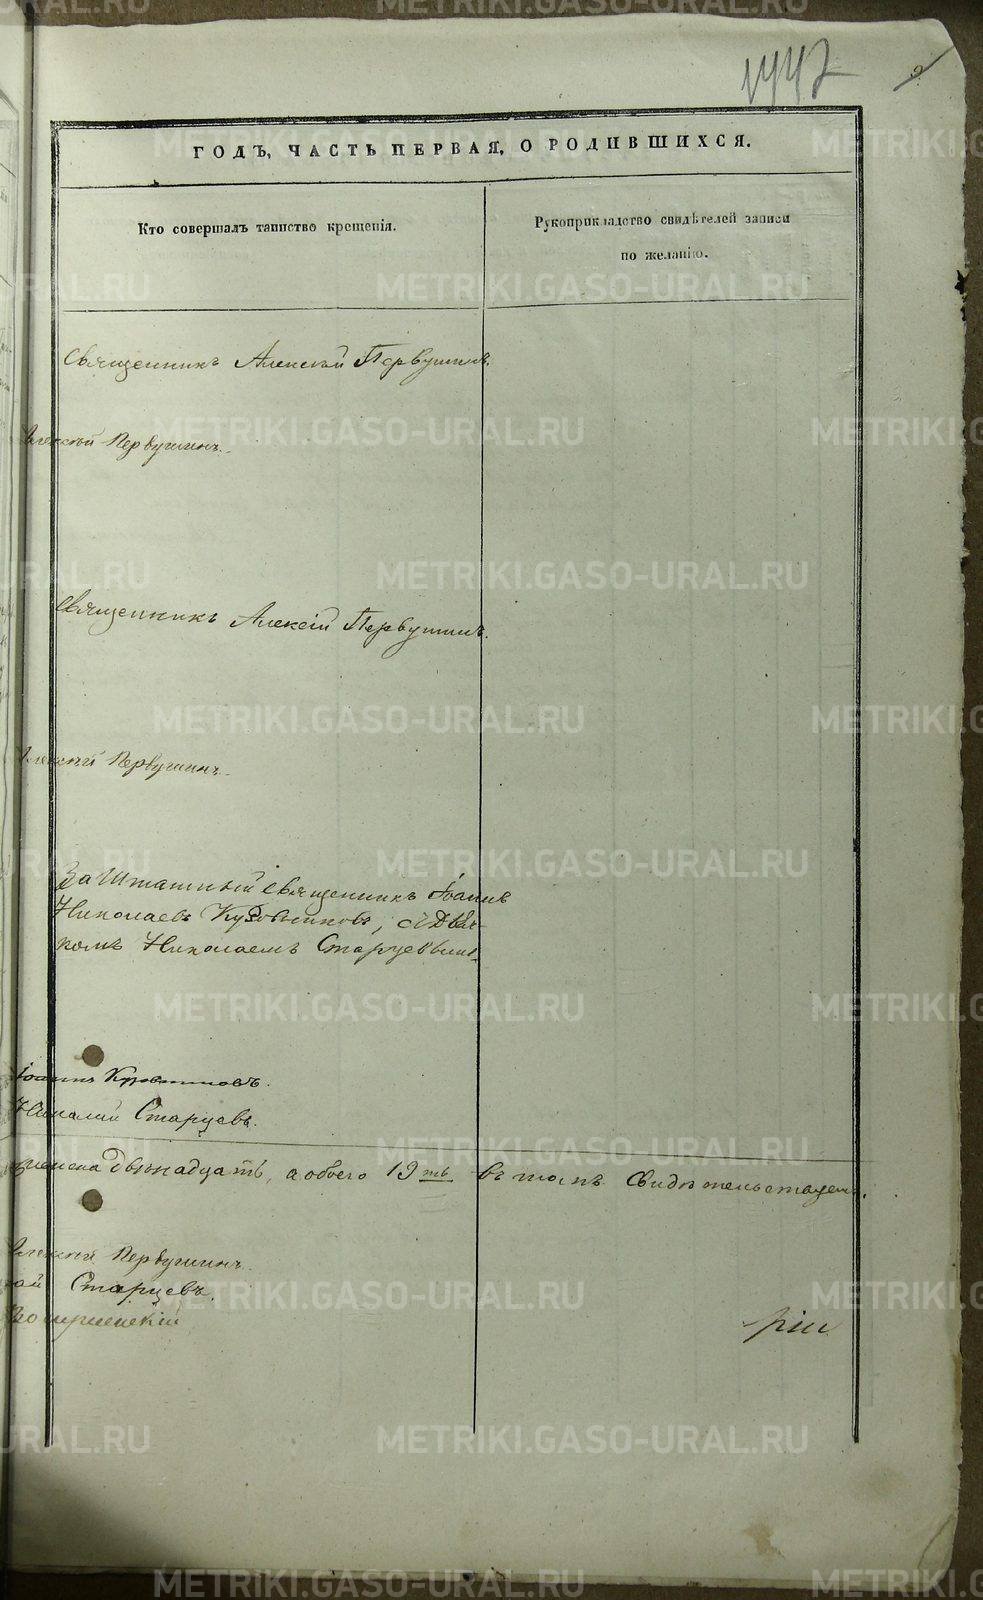 1447
9
ГОДЪ, ЧАСТЬ ПЕРВАЯ, О РОДИВШИХСЯ.
Кто совершалъ таинство крещенія.
Рукоприкладство свидѣтелей записи
по желанію.
Священникъ Алексѣй Первушинъ.
Алексѣй Первушинъ.
Священникъ Алексій Первушинъ.
Алексѣй Первушинъ.
Заштатный священникъ Іоаннъ
Николаевъ , съ Дьяч-
комъ Николаемъ Старцевымъ.
Іоаннъ
Николай Старцевъ.
двѣнадцать, а обоего 19ть въ томъ свидѣтельствуемъ.
Алексѣй Первушинъ
ай Старцевъ.
METRIKI.GASO-URAL.RU